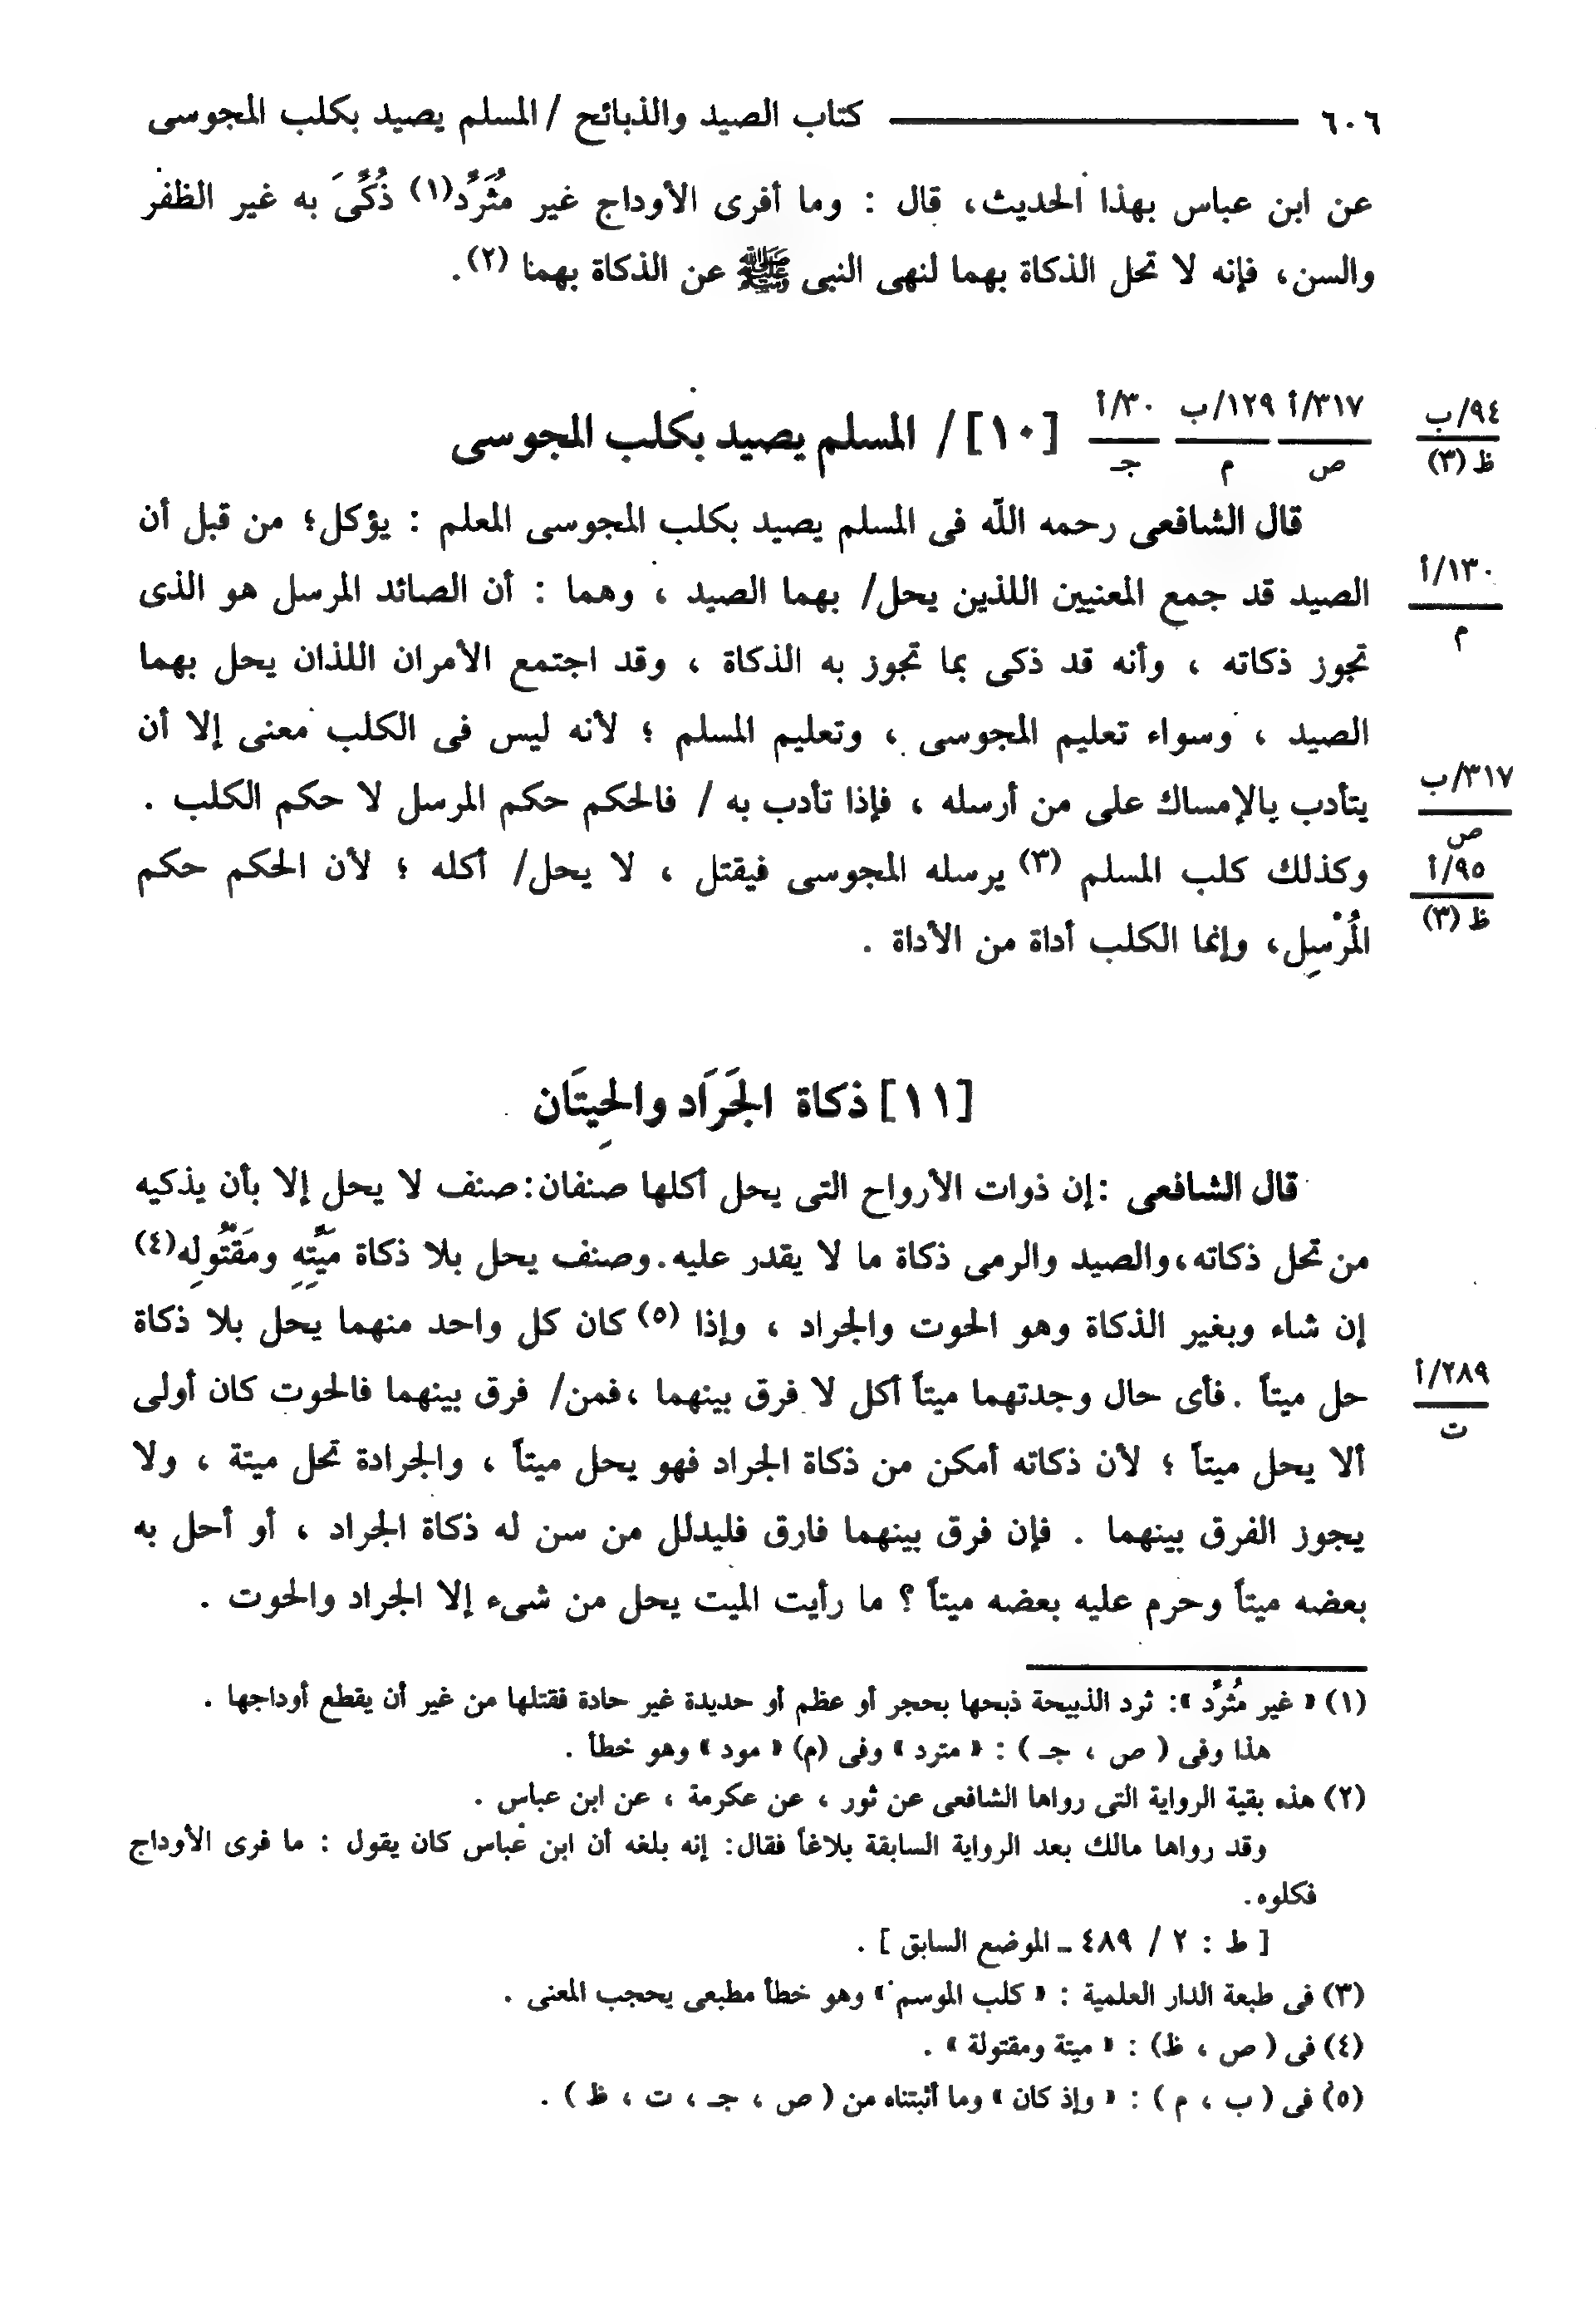 ٦٠٦ كتاب الصيد والذبائح / المسلم يصيد بكلب المجوسى
عن ابن عباس بهذا الحديث، قال : وما أفرى الأوداج غير مُثَرِّد(١) ذُكِّىَ به غير الظفر
والسن، فإنه لا تحل الذكاة بهما لنهى النبى ﷺ عن الذكاة بهما (٢).
٩٤/ب
ظ (٣)
٣١٧/أ ١٢٩/ب ٣٠/أ
ص م جـ
[١٠] / المسلم يصيد بكلب المجوسى
قال الشافعى رحمه اللّه فى المسلم يصيد بكلب المجوسى المعلم : يؤكل؛ من قبل أن
١٣٠/أ
م
الصيد قد جمع المعنيين اللذين يحل/ بهما الصيد ، وهما : أن الصائد المرسل هو الذى
تجوز ذكاته ، وأنه قد ذكى بما تجوز به الذكاة ، وقد اجتمع الأمران اللذان يحل بهما
الصيد ، وسواء تعليم المجوسى ، وتعليم المسلم ؛ لأنه ليس فى الكلب معنى إلا أن
٣١٧/ب
ص
يتأدب بالإمساك على من أرسله ، فإذا تأدب به / فالحكم حكم المرسل لا حكم الكلب .
٩٥/أ
ظ (٣)
وكذلك كلب المسلم (٣) يرسله المجوسى فيقتل ، لا يحل/ أكله ؛ لأن الحكم حكم
المُرْسِل، وإنما الكلب أداة من الأداة .
[١١] ذكاة الجَرَاد والحِيتَان
قال الشافعى :إن ذوات الأرواح التى يحل أكلها صنفان:صنف لا يحل إلا بأن يذكيه
من تحل ذكاته،والصيد والرمى ذكاة ما لا يقدر عليه.وصنف يحل بلا ذكاة مَيِّتِهِ ومَقْتُولِه(٤)
إن شاء وبغير الذكاة وهو الحوت والجراد ، وإذا (٥) كان كل واحد منهما يحل بلا ذكاة
٢٨٩/أ
ت
حل ميتاً .فأى حال وجدتهما ميتاً أكل لا فرق بينهما ،فمن/ فرق بينهما فالحوت كان أولى
ألا يحل ميتاً ؛ لأن ذكاته أمكن من ذكاة الجراد فهو يحل ميتاً ، والجرادة تحل ميتة ، ولا
يجوز الفرق بينهما . فإن فرق بينهما فارق فليدلل من سن له ذكاة الجراد ، أو أحل به
بعضه ميتاً وحرم عليه بعضه ميتاً ؟ ما رأيت الميت يحل من شىء إلا الجراد والحوت .
(١) « غير مُثرِّد »: ثرد الذبيحة ذبحها بحجر أو عظم أو حديدة غير حادة فقتلها من غير أن يقطع أوداجها .
هذا وفى ( ص ، جـ ) : « مترد » وفى (م) « مود » وهو خطأ .
(٢) هذه بقية الرواية التى رواها الشافعى عن ثور ، عن عكرمة ، عن ابن عباس .
وقد رواها مالك بعد الرواية السابقة بلاغاً فقال: إنه بلغه أن ابن عباس كان يقول : ما فرى الأوداج
فكلوه.
[ ط : ٢ / ٤٨٩ ـ الموضع السابق ] .
(٣) فى طبعة الدار العلمية : « كلب الموسم » وهو خطأ مطبعى يحجب المعنى .
(٤) فى ( ص ، ظ) : « ميتة ومقتولة » .
(٥) فى ( ب ، م ) : « وإذ كان » وما أثبتناه من ( ص ، جـ ، ت ، ظ ) .